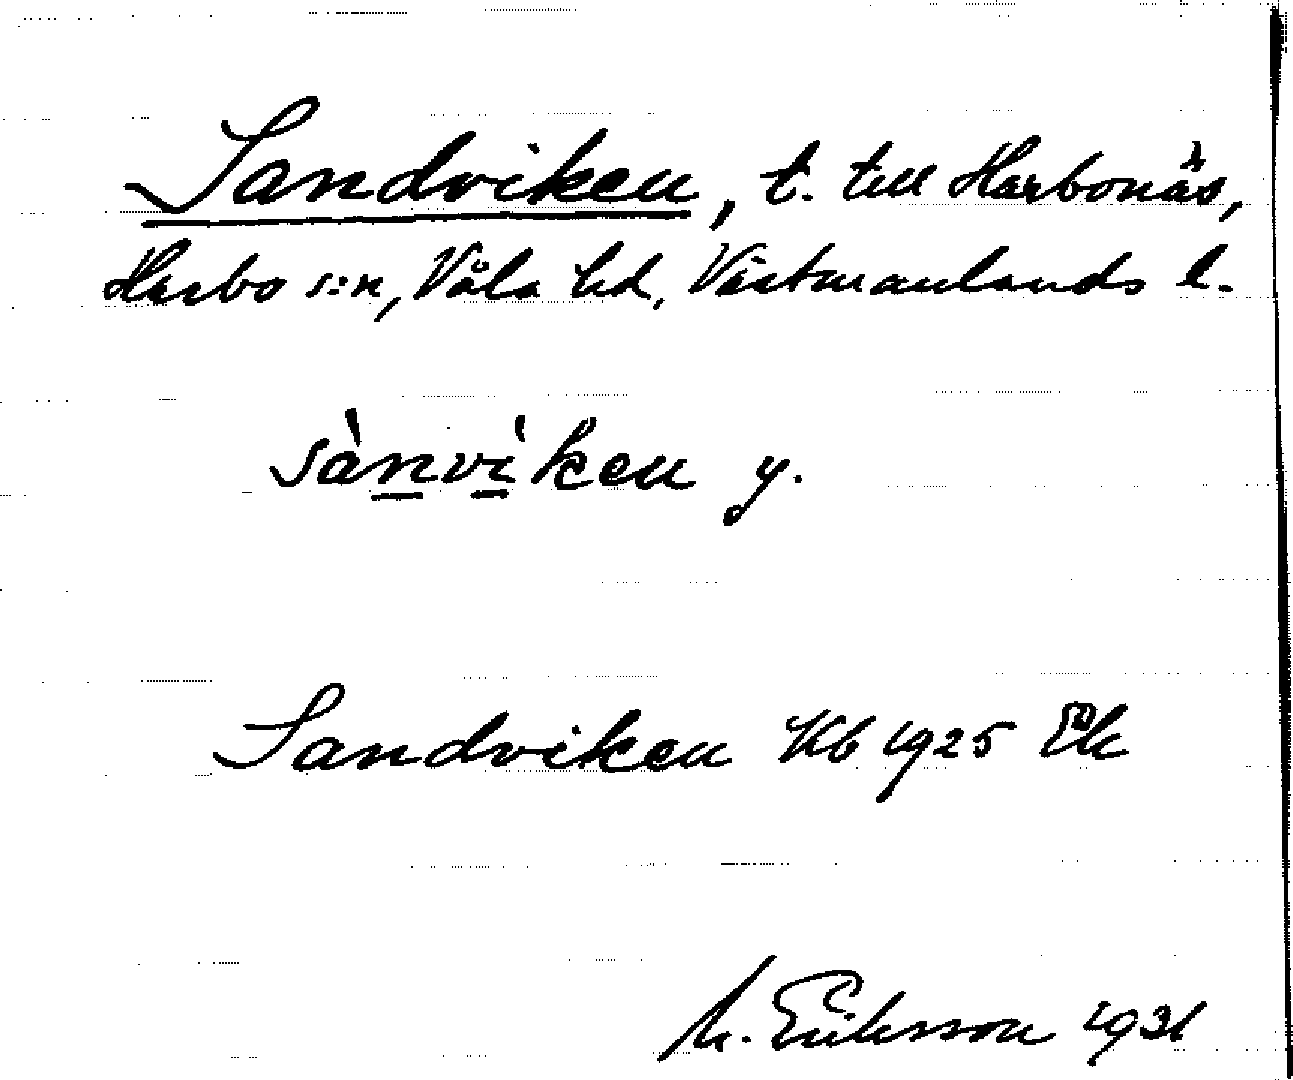 Sandviken, t. till Harbonäs,
Harbo s:n, Våla hd, Västmanlands l.
sànvìken y.
Sandviken Kb 1925 Ek
M. Eriksson 1931